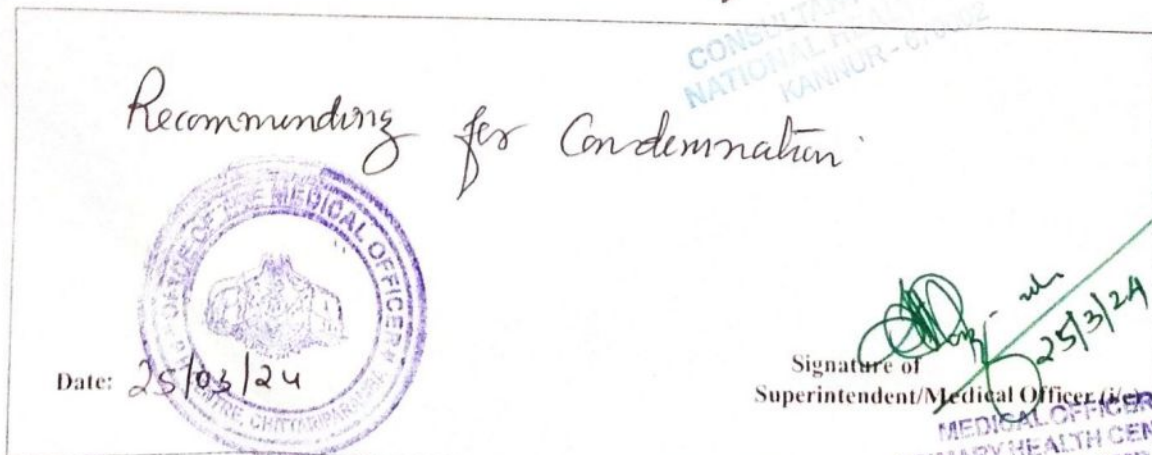 CONSULTANT
NATIONAL HEAL
KANNUR - 670002
Recommending for Condemnation
OFFICE OF THE MEDICAL OFFICER
CENTRE CHITTARIPARAMBA
Date: 25/03/24
25/3/24
Signature of
Superintendent/Medical Officer (i/c)
MEDICAL OFFICER
MARY HEALTH CEN